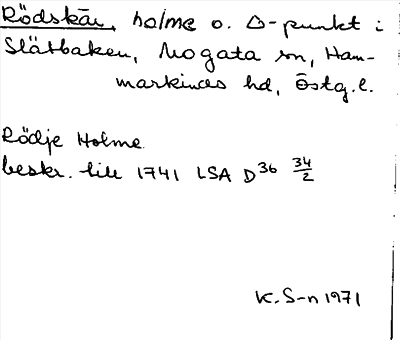 Rödskär, holme o. △-punkt i
Slätbaken, Mogata sn, Ham-
markinds hd, Östg. l.
Rödje Holme
beskr. till 1741 LSA D36 34/2
K. S-n 1971